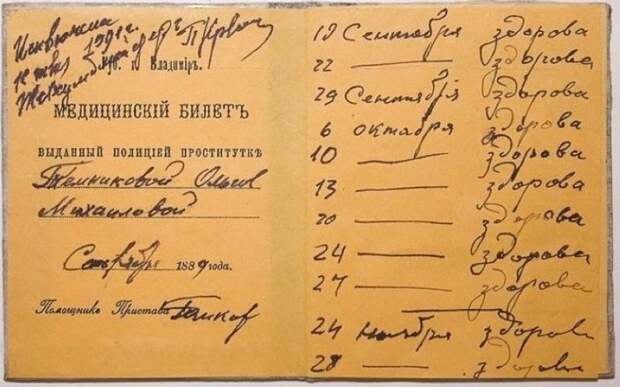 Губ. г. Владиміръ.
МЕДИЦИНСКІЙ БИЛЕТЪ
ВЫДАННЫЙ ПОЛИЦІЕЙ ПРОСТИТУТКѢ
Темниковой
Михаиловой
Сентября 1889 года.
Помощникъ Пристава
19 Сентября здорова
22 — здорова
29 Сентября здорова
6 октября здорова
10 — здорова
13 — здорова
20 — здорова
24 — здорова
27 — здорова
24 ноября здорова
28 — здорова